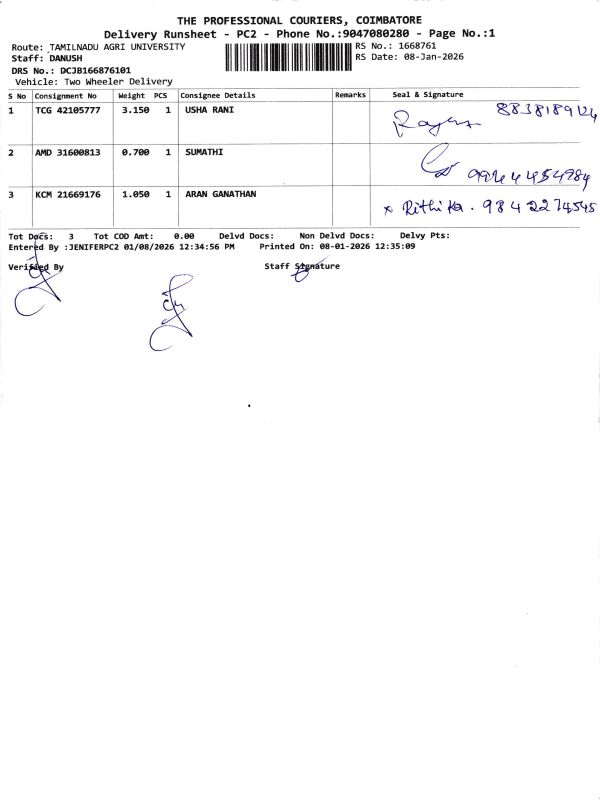 THE PROFESSIONAL COURIERS, COIMBATORE
Delivery Runsheet - PC2 - Phone No.:9047080280 - Page No.:1
Route: TAMILNADU AGRI UNIVERSITY RS No.: 1668761
Staff: DANUSH RS Date: 08-Jan-2026
DRS No.: DCJB166876101
Vehicle: Two Wheeler Delivery
S No Consignment No Weight PCS Consignee Details Remarks Seal & Signature
1 TCG 42105777 3.150 1 USHA RANI
2 AMD 31600813 0.700 1 SUMATHI
3 KCM 21669176 1.050 1 ARAN GANATHAN x Rithika. 9842274545
Tot Docs: 3 Tot COD Amt: 0.00 Delvd Docs: Non Delvd Docs: Delvy Pts:
Entered By :JENIFERPC2 01/08/2026 12:34:56 PM Printed On: 08-01-2026 12:35:09
Verified By Staff Signature